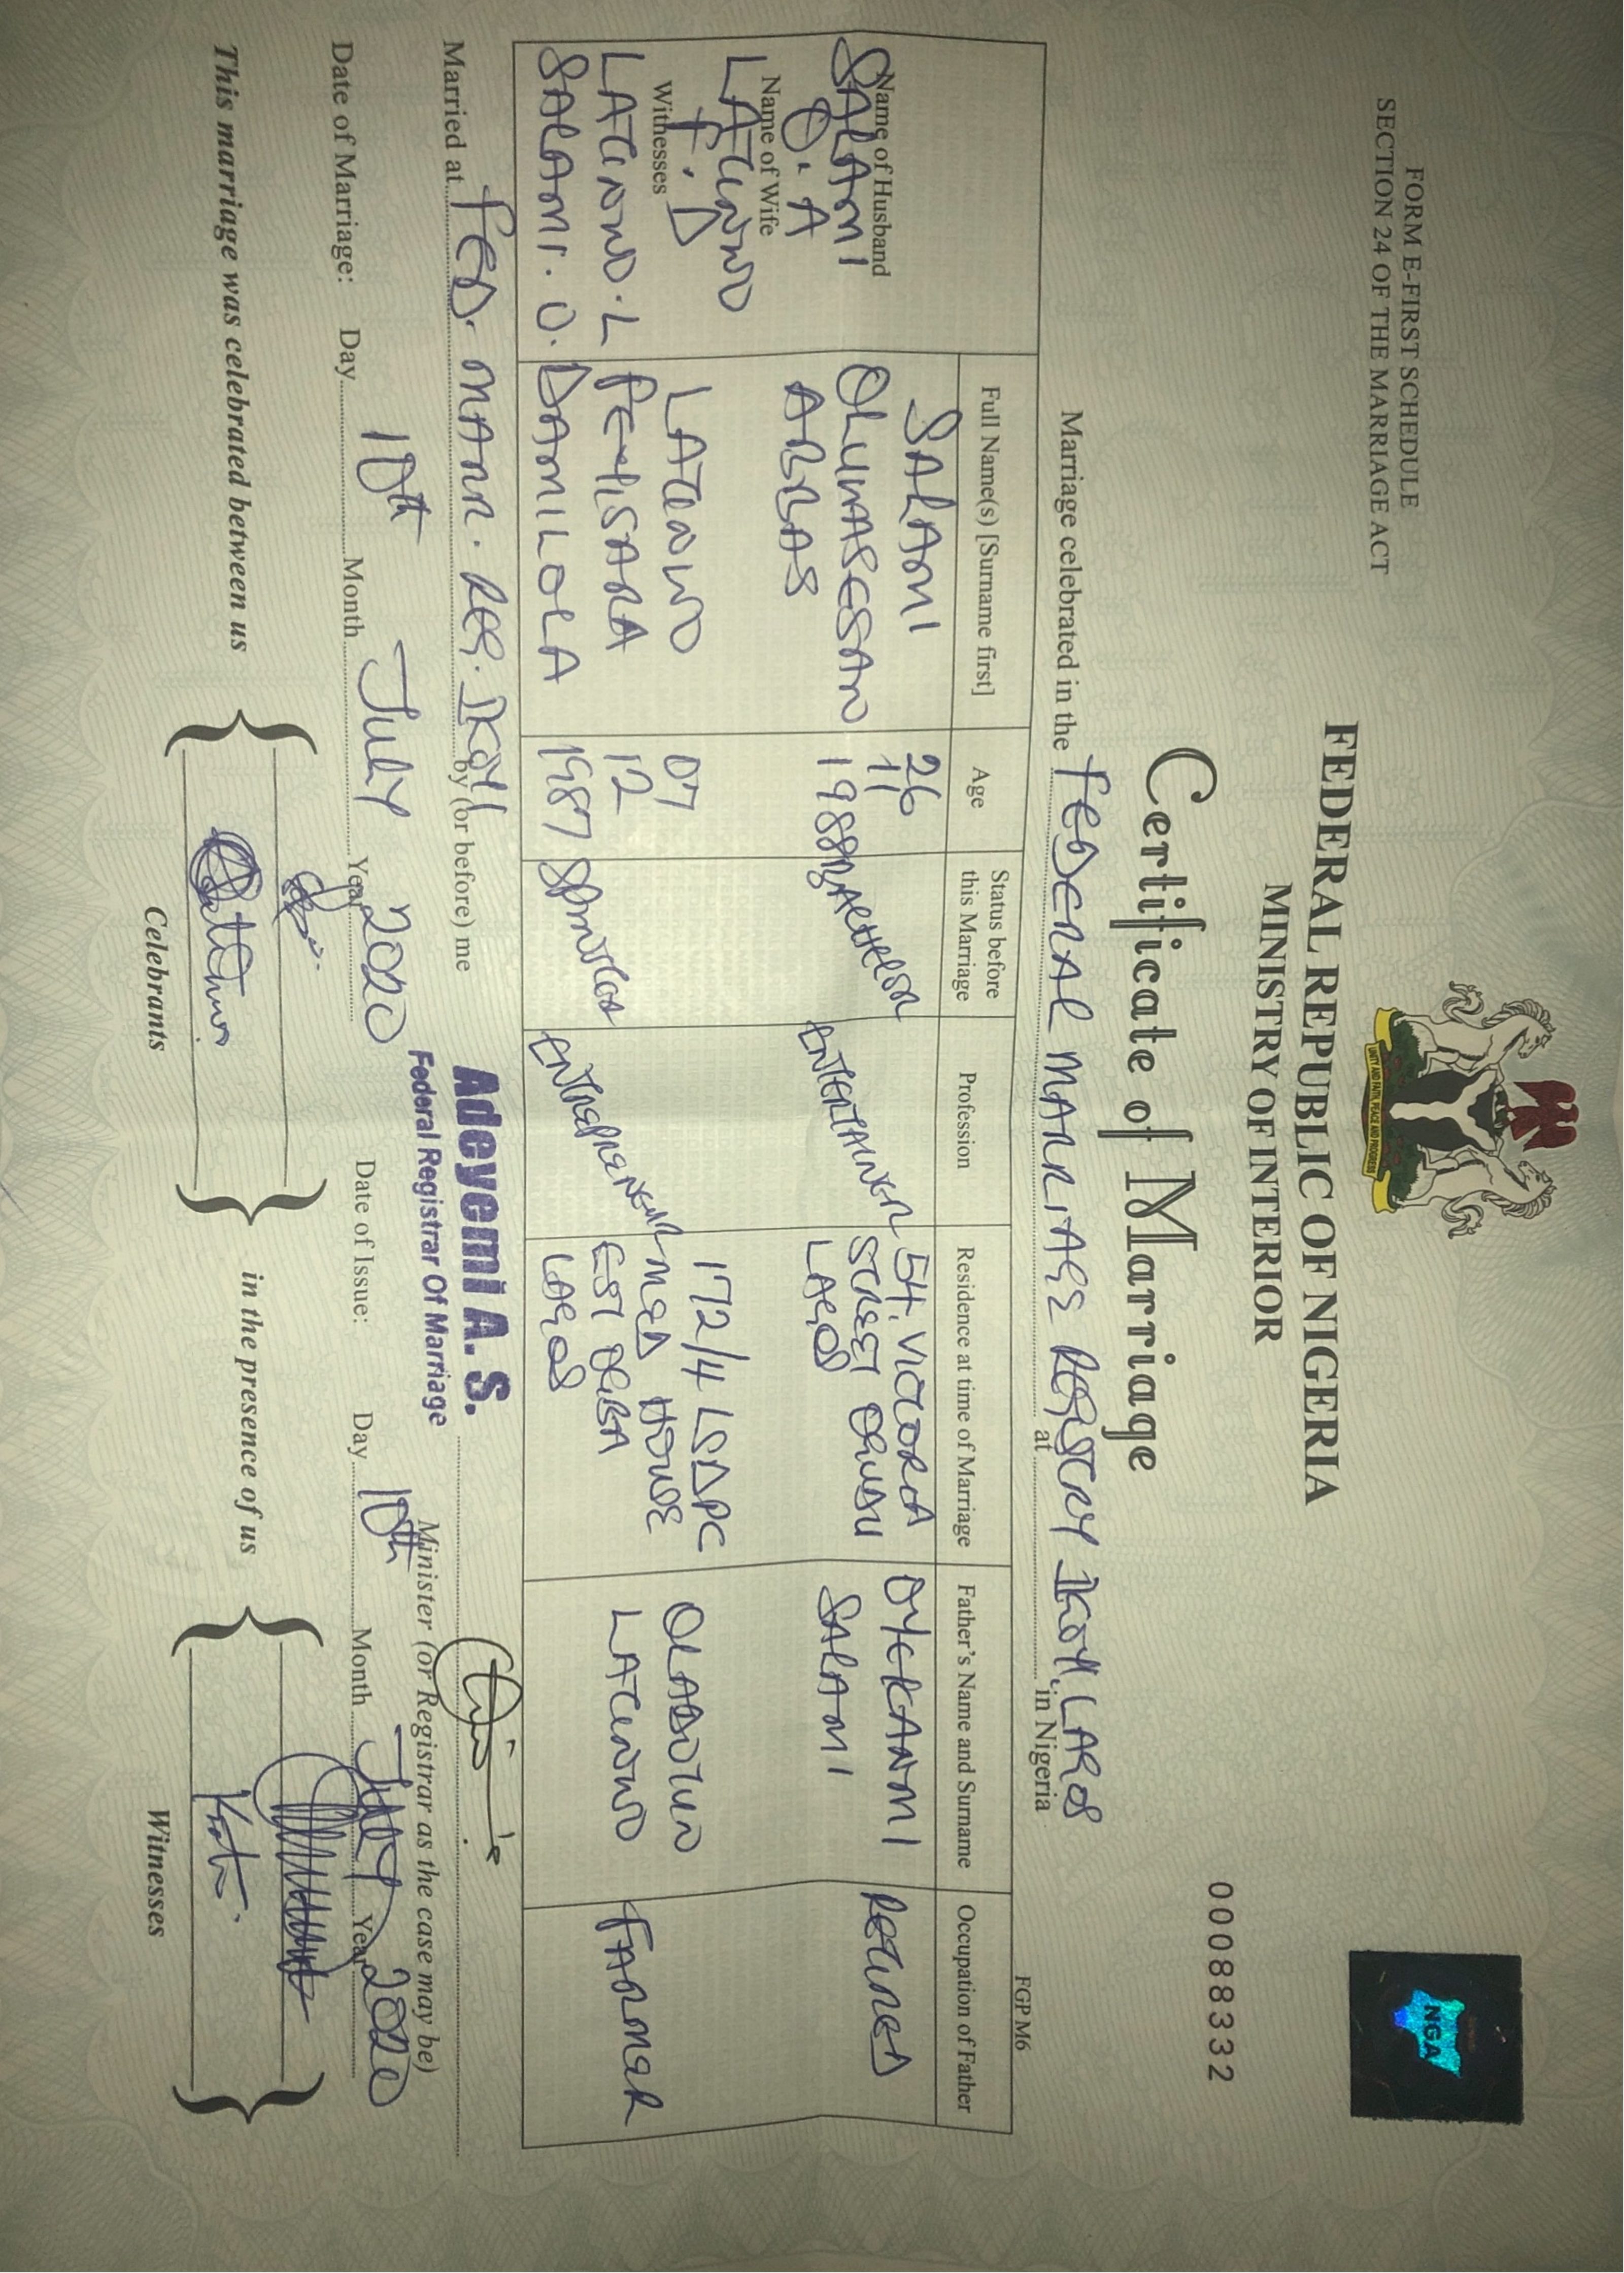 FORM E-FIRST SCHEDULE
SECTION 24 OF THE MARRIAGE ACT
UNITY AND FAITH, PEACE AND PROGRESS
NGA
FEDERAL REPUBLIC OF NIGERIA
MINISTRY OF INTERIOR
0008332
Certificate of Marriage
FGP M6
Marriage celebrated in the FEDERAL MARRIAGE REGISTRY at IKOYI, LAGOS in Nigeria
Full Name(s) [Surname first] Age Status before this Marriage Profession Residence at time of Marriage Father's Name and Surname Occupation of Father
Name of Husband
SALAMI
O. A
SALAMI
OLUWASEGSAN
ABBAS
26
11
1988
BACHELOR
ENTERTAINER
54, VICTORIA
STREET OJUDU
LAGOS
OYEKANMI
SALAMI
RETIRED
Name of Wife
LATUNWO
F. D
Witnesses
LATUNWO. L
SALAMI. O.
LATUNWO
FEHISARA
DAMILOLA
07
12
1987
SPINSTER
ENTREPRENEUR
172/4 LSDPC
MED HOUSE
EST OGBA
LAGOS
OLADOTUN
LATUNWO
FARMER
Married at FED. MARR. REG. IKOYI by (or before) me
Adeyemi A. S.
Federal Registrar Of Marriage
Minister (or Registrar as the case may be)
Date of Marriage: Day 10th Month July Year 2020 Date of Issue: Day 10th Month July Year 2020
This marriage was celebrated between us in the presence of us
Celebrants Witnesses